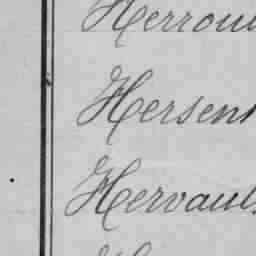 Herrou
Hersen
Hervaul